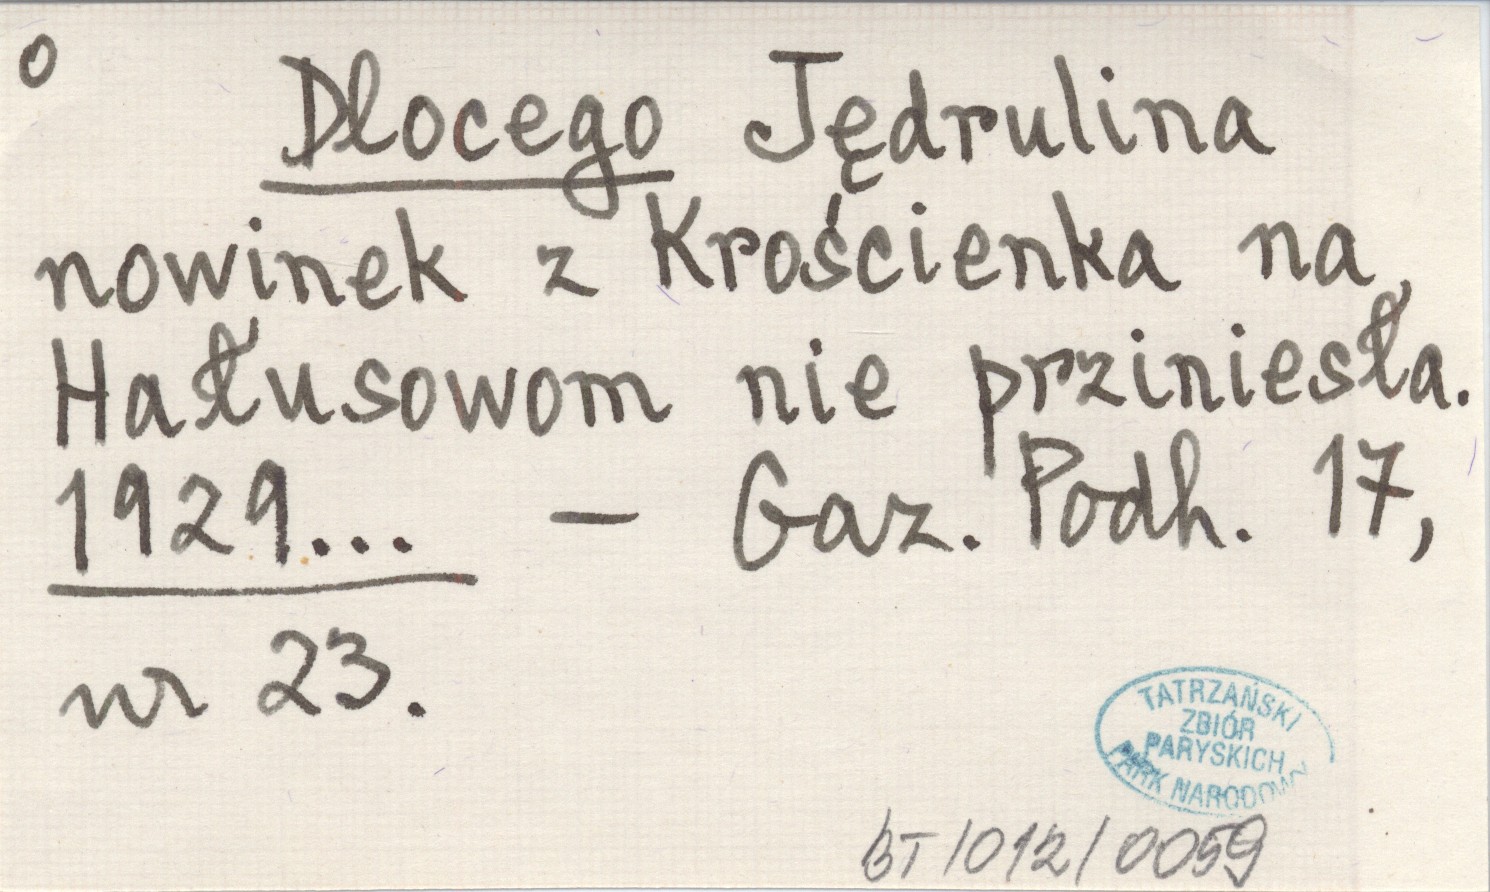 o
Dlocego Jędrulina
nowinek z Krościenka na
Hałusowom nie prziniesła.
1929... – Gaz. Podh. 17,
nr 23.
TATRZAŃSKI
ZBIÓR
PARYSKICH
PARK NARODOWY
BT/012/0059